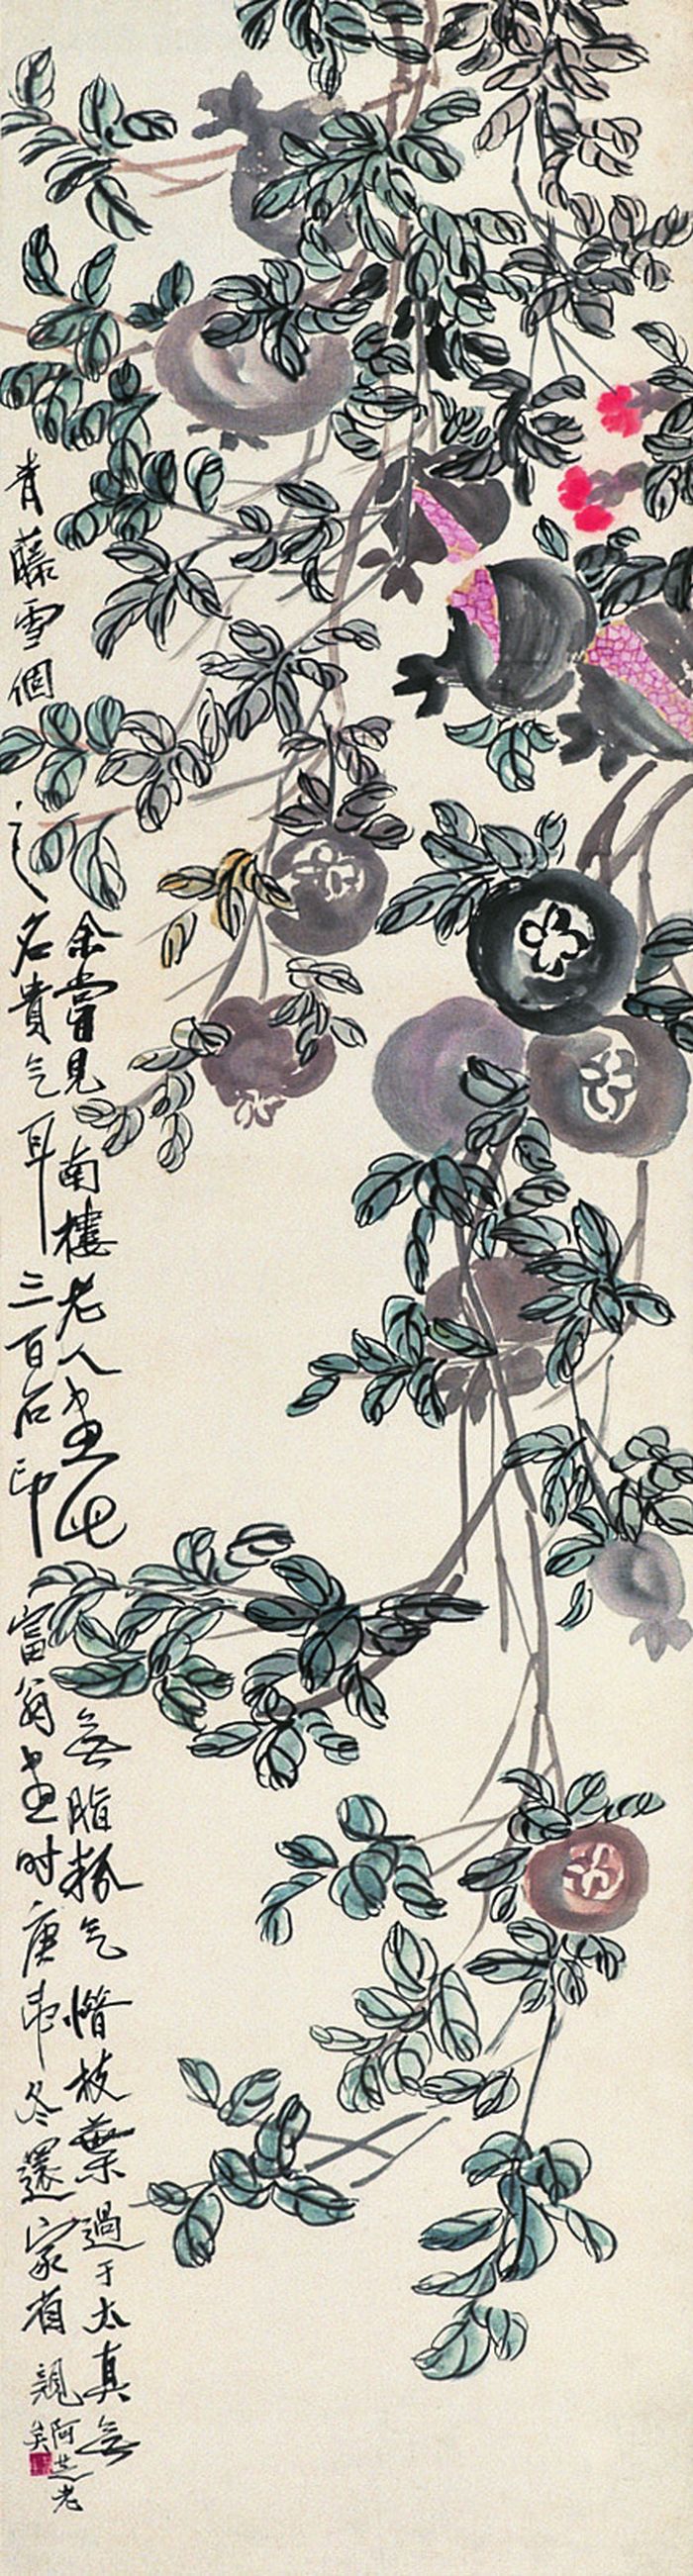 余嘗見南樓老人畫此無脂粉气惜枝葉過于太真無
青藤雪個之名貴气耳三百石印富翁畫時庚申冬還家省親矣
阿芝老